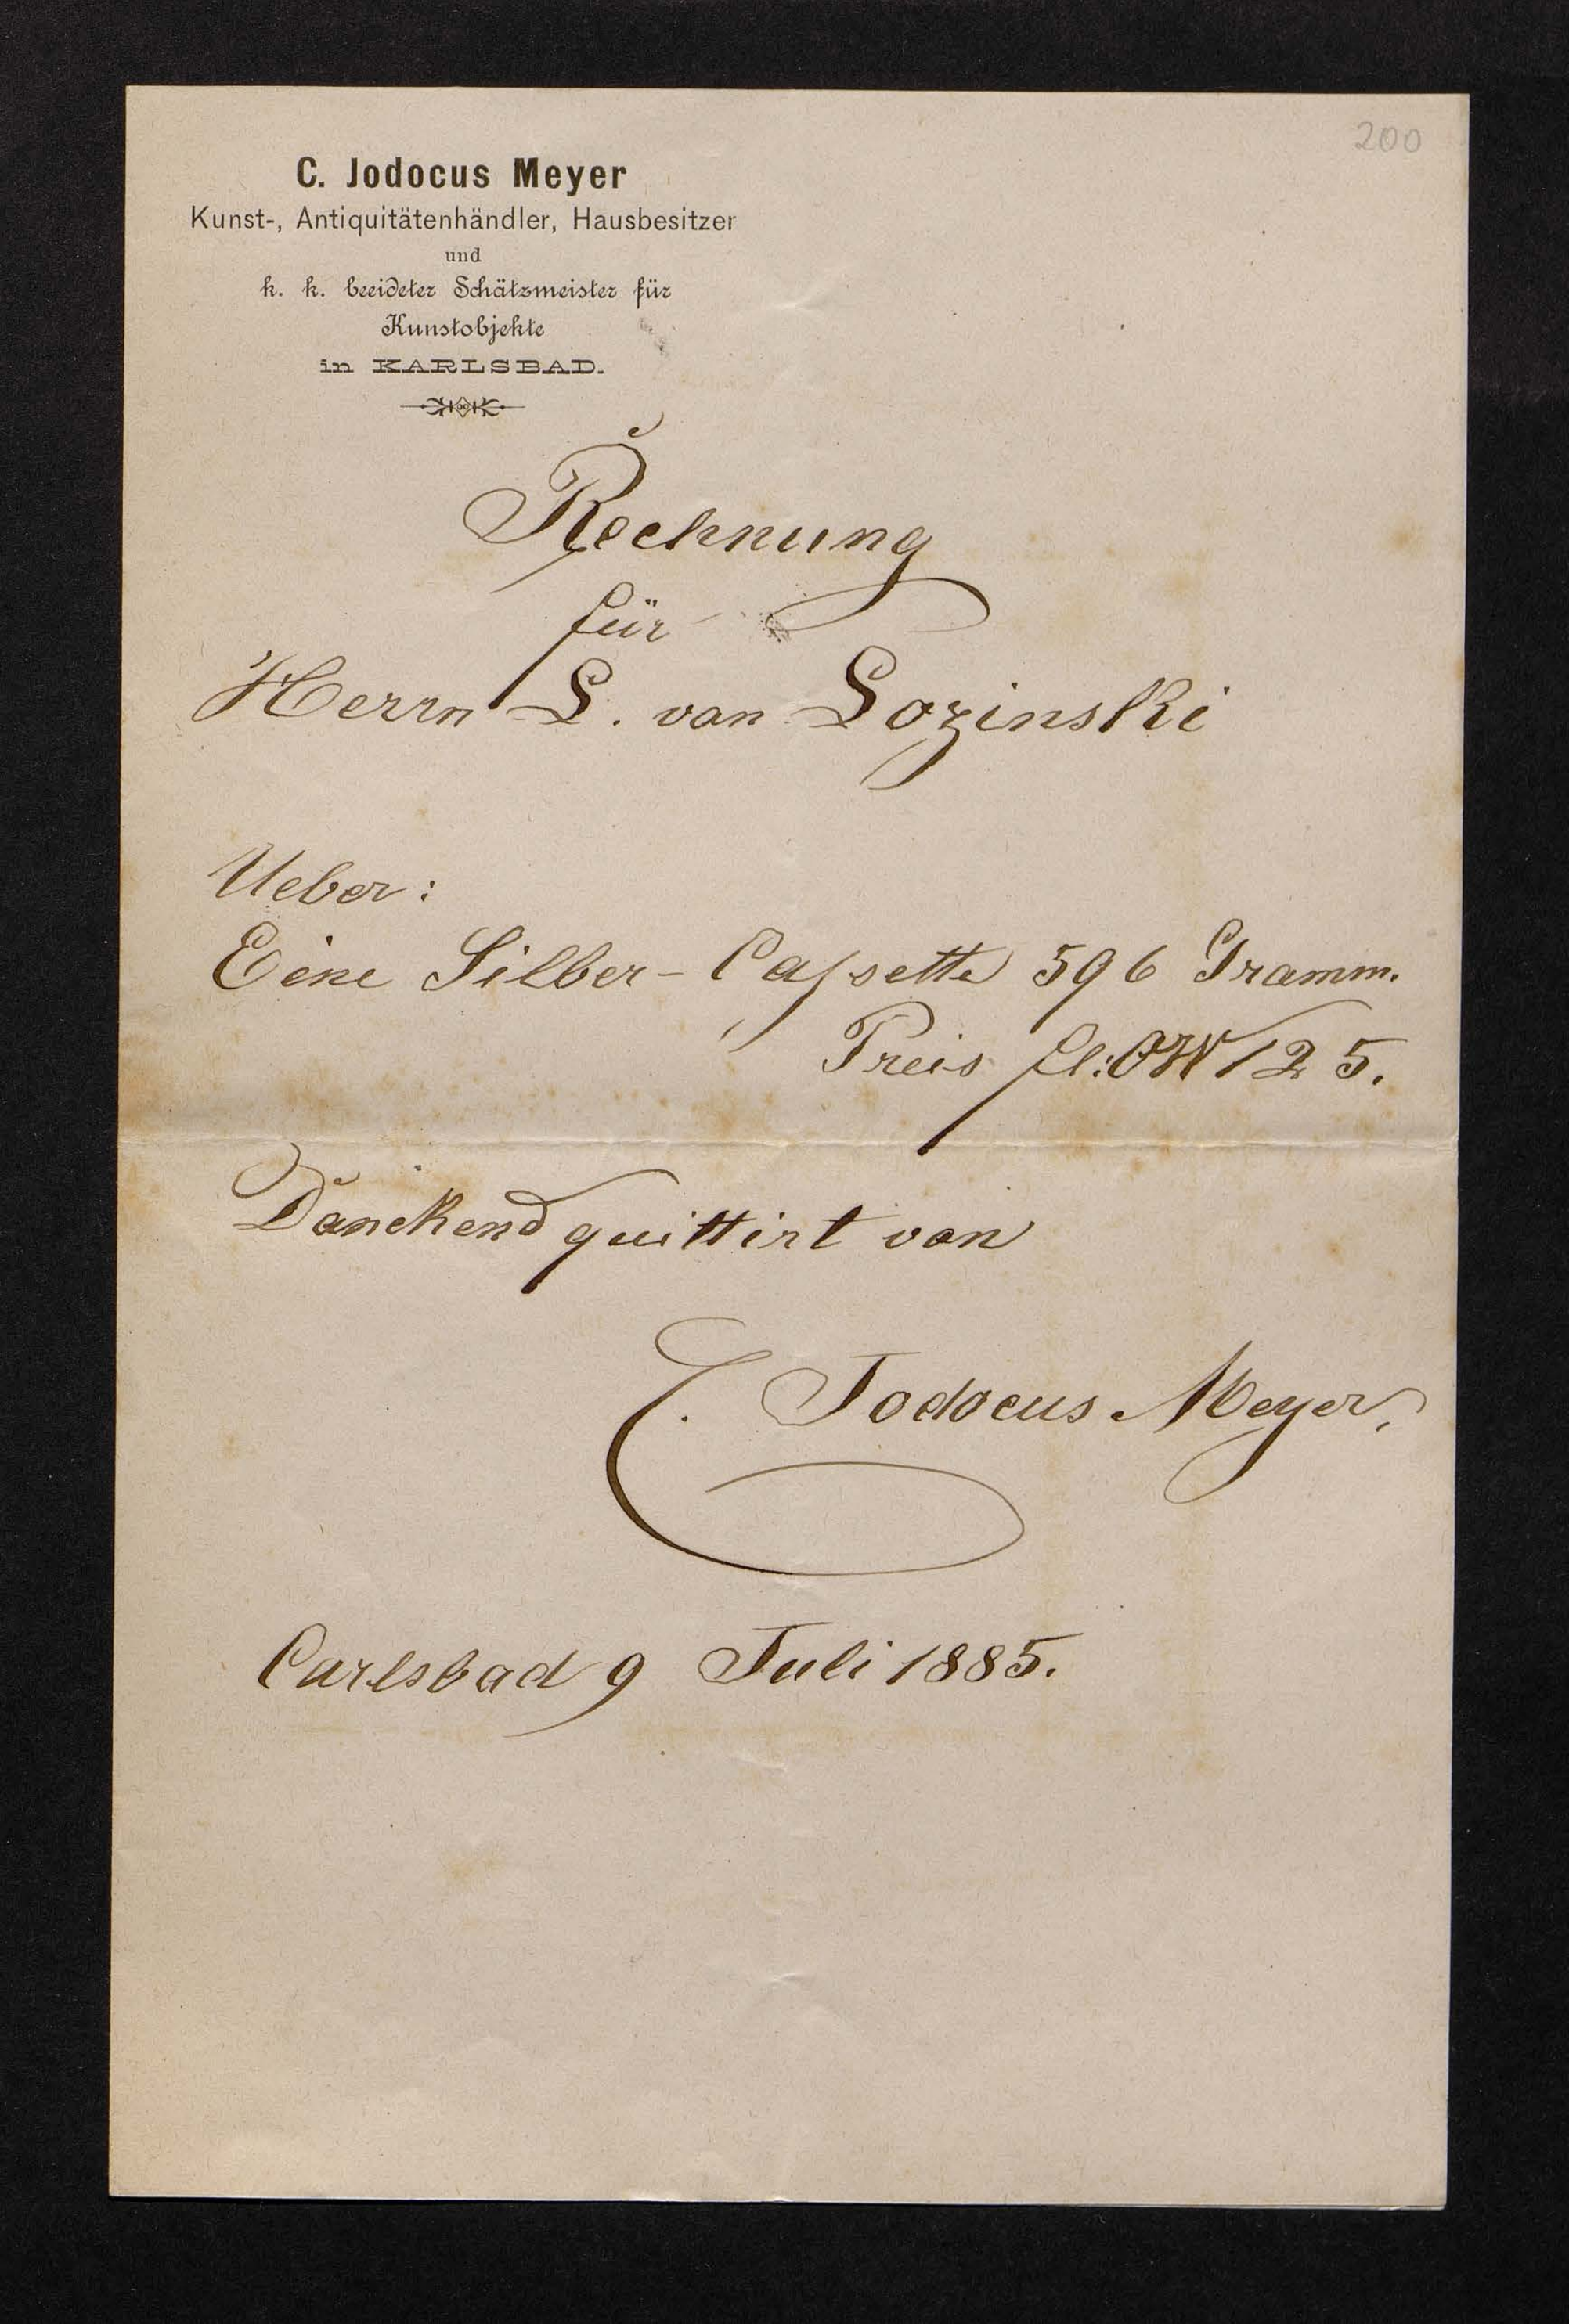 200
C. Jodocus Meyer
Kunst-, Antiquitätenhändler, Hausbesitzer
und
k. k. beeideter Schätzmeister für
Kunstobjekte
in KARLSBAD.
Rechnung
für
Herrn L. van Lozinski
Ueber:
Eine Silber-Caſsette 596 Gramm.
Preis fl: ÖW 125.
Danckend quittirt van
C. Jodocus Meyer.
Carlsbad 9 Juli 1885.